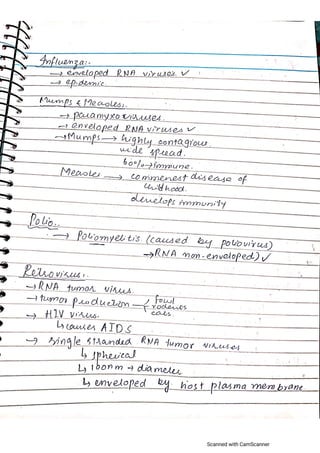 Influenza:-
→ enveloped RNA viruses ✓
→ epidemic
Mumps & Measles:-
→ paramyxoviruses
→ enveloped RNA viruses ✓
→ Mumps → highly contagious
wide spread.
60% → immune.
Measles → commenest disease of
childhood.
develops immunity
Polio:-
→ Poliomyelitis (caused by poliovirus)
→ RNA non-enveloped) ✓
Retrovirus:-
→ RNA tumor virus.
→ tumor production → fowl
rodents
cats
→ HIV virus.
↳ causes AIDS
→ single stranded RNA tumor viruses
↳ spherical
↳ 100nm → diameter
↳ enveloped by host plasma membrane
Scanned with CamScanner